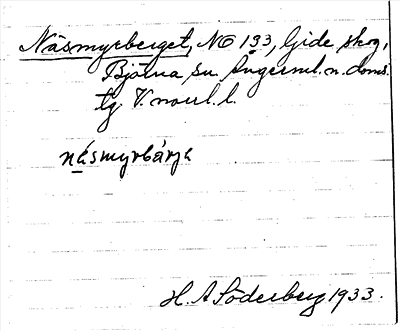 Näsmyrberget, NO 133, Gide skog,
Björna sn. Ångerml. n. doms.
tg V. norrl. l.
näsmyrbärje
H. A Söderberg 1933.